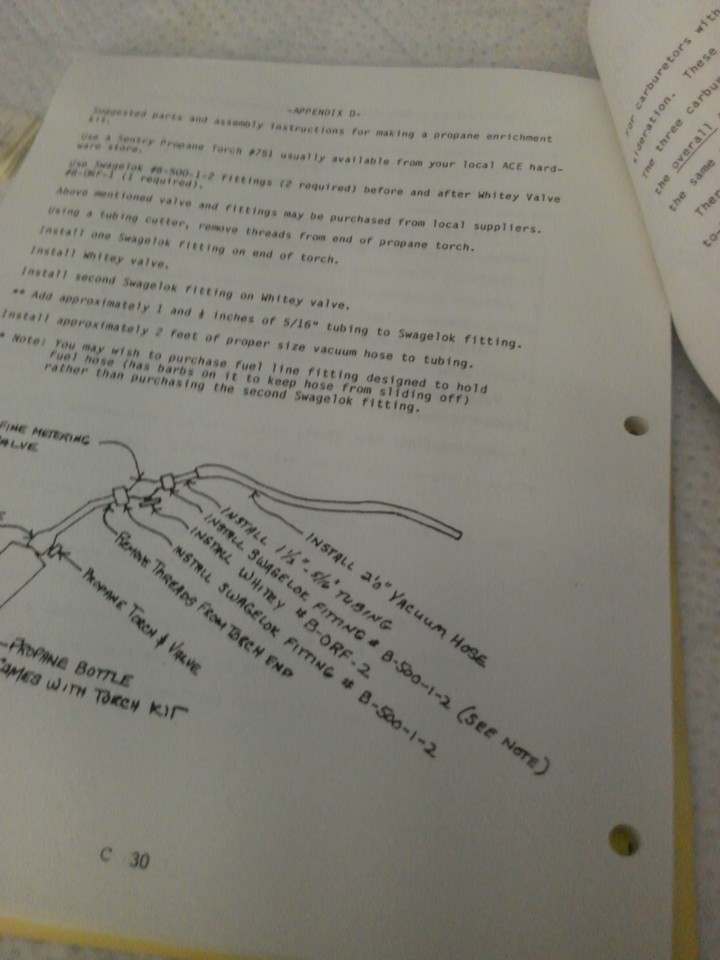 -APPENDIX D-
Suggested parts and assembly instructions for making a propane enrichment
kit.
Use a Sentry Propane Torch #751 usually available from your local ACE hard-
ware store.
Use Swagelok #B-500-1-2 fittings (2 required) before and after Whitey Valve
#B-ORF-1 (1 required).
Above mentioned valve and fittings may be purchased from local suppliers.
Using a tubing cutter, remove threads from end of propane torch.
Install one Swagelok fitting on end of torch.
Install Whitey valve.
Install second Swagelok fitting on Whitey valve.
** Add approximately 1 and ½ inches of 5/16" tubing to Swagelok fitting.
Install approximately 2 feet of proper size vacuum hose to tubing.
* Note: You may wish to purchase fuel line fitting designed to hold
fuel hose (has barbs on it to keep hose from sliding off)
rather than purchasing the second Swagelok fitting.
FINE METERING
VALVE
INSTALL 2'0" VACUUM HOSE
INSTALL 1½"-5/16" TUBING
INSTALL SWAGELOK FITTING # B-500-1-2 (SEE NOTE)
INSTALL WHITEY #B-ORF-2
INSTALL SWAGELOK FITTING # B-500-1-2
REMOVE THREADS FROM TORCH END
PROPANE TORCH & VALVE
PROPANE BOTTLE
COMES WITH TORCH KIT
C 30
for carburetors with
These
the three carbu
the overall
the same
Ther
to-